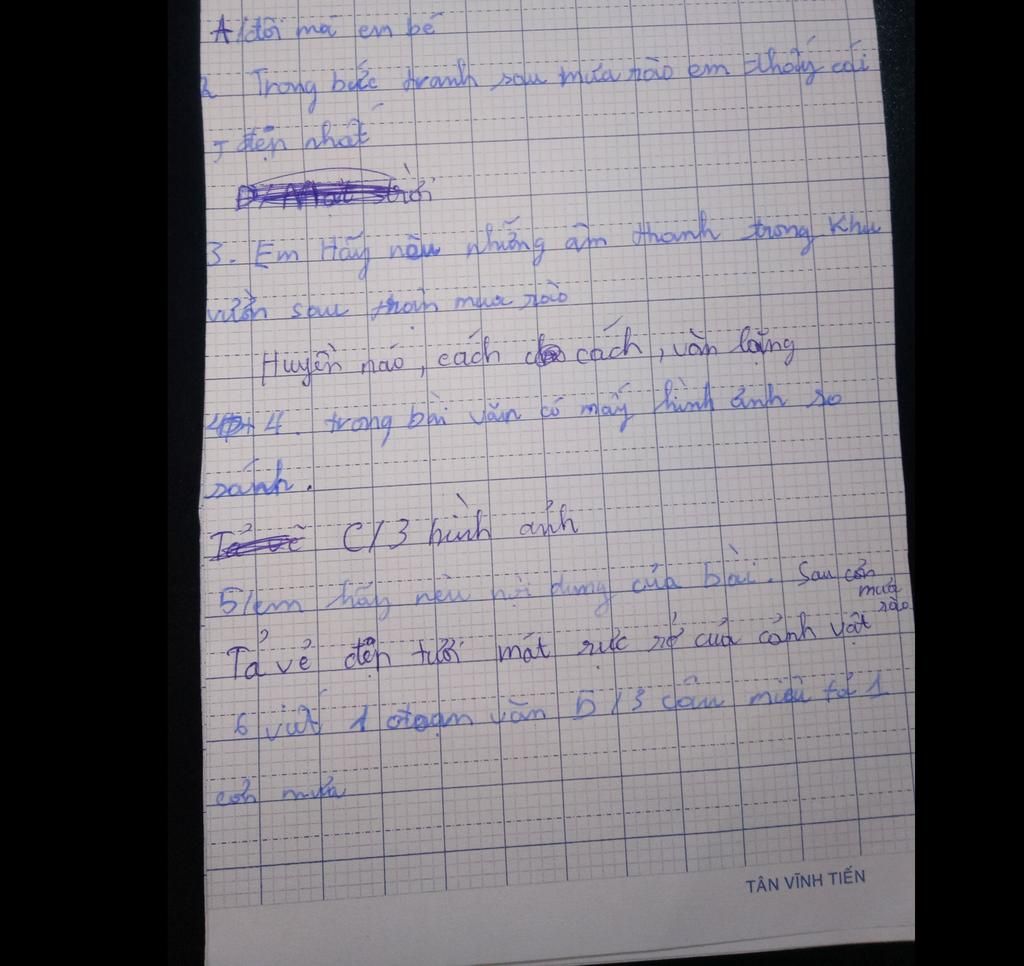 A/đôi má em bé
2 Trong bức tranh sau mưa rào em thấy cái
đẹp nhất
trời
3. Em Hãy nêu những âm thanh trong Khu
vườn sau trận mưa rào
Huyên náo, cách cách, vằn lặng
4. trong bài văn có mấy hình ảnh so
sánh.
C/3 hình ảnh
5/em hãy nêu nội dung của bài. Sau cơn
mưa
rào
Tả vẻ đẹp tươi mát rực rỡ của cảnh vật
6 viết 1 đoạn văn 5/3 câu miêu tả 1
cơn mưa
TÂN VĨNH TIẾN